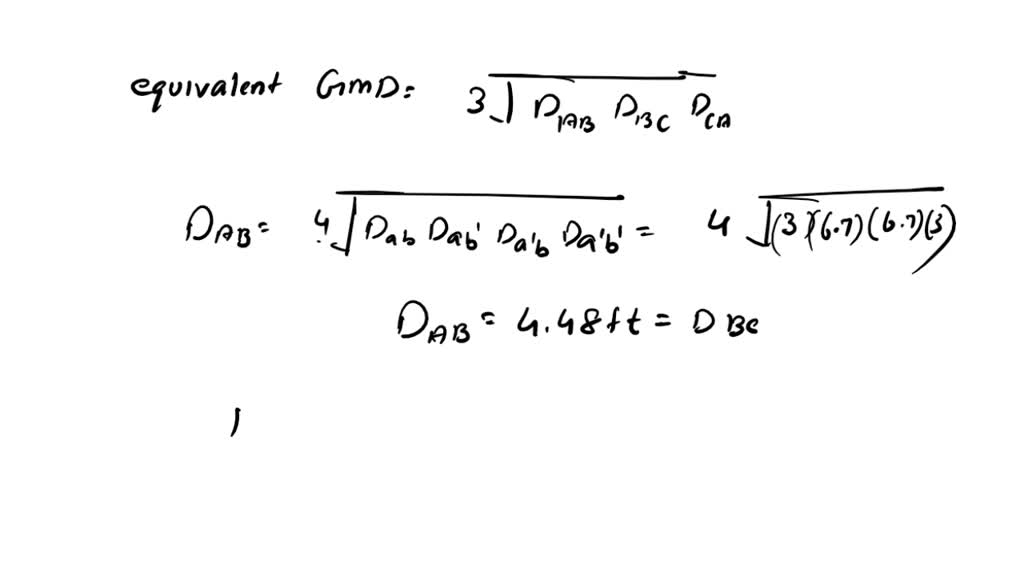 equivalent GMD= 3√ D_AB D_BC D_CA
D_AB= 4√ Dab Dab' Da'b Da'b' = 4 √(3)(6.7)(6.7)(3)
D_AB = 4.48ft = D BC